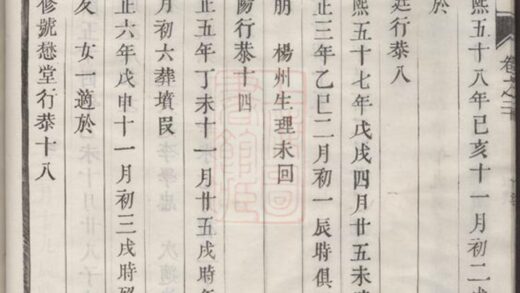 熙五十八年己亥十一月初二戌
於
廷行恭八
熙五十七年戊戌四月廿五未時
正三年乙巳二月初一辰時俱
朋　楊州生理未回
陽行恭十四
正五年丁未十一月廿五戌時
月初六葬墳叚
正六年戊申十一月初三戌時
女一適於
修號懋堂行恭十八